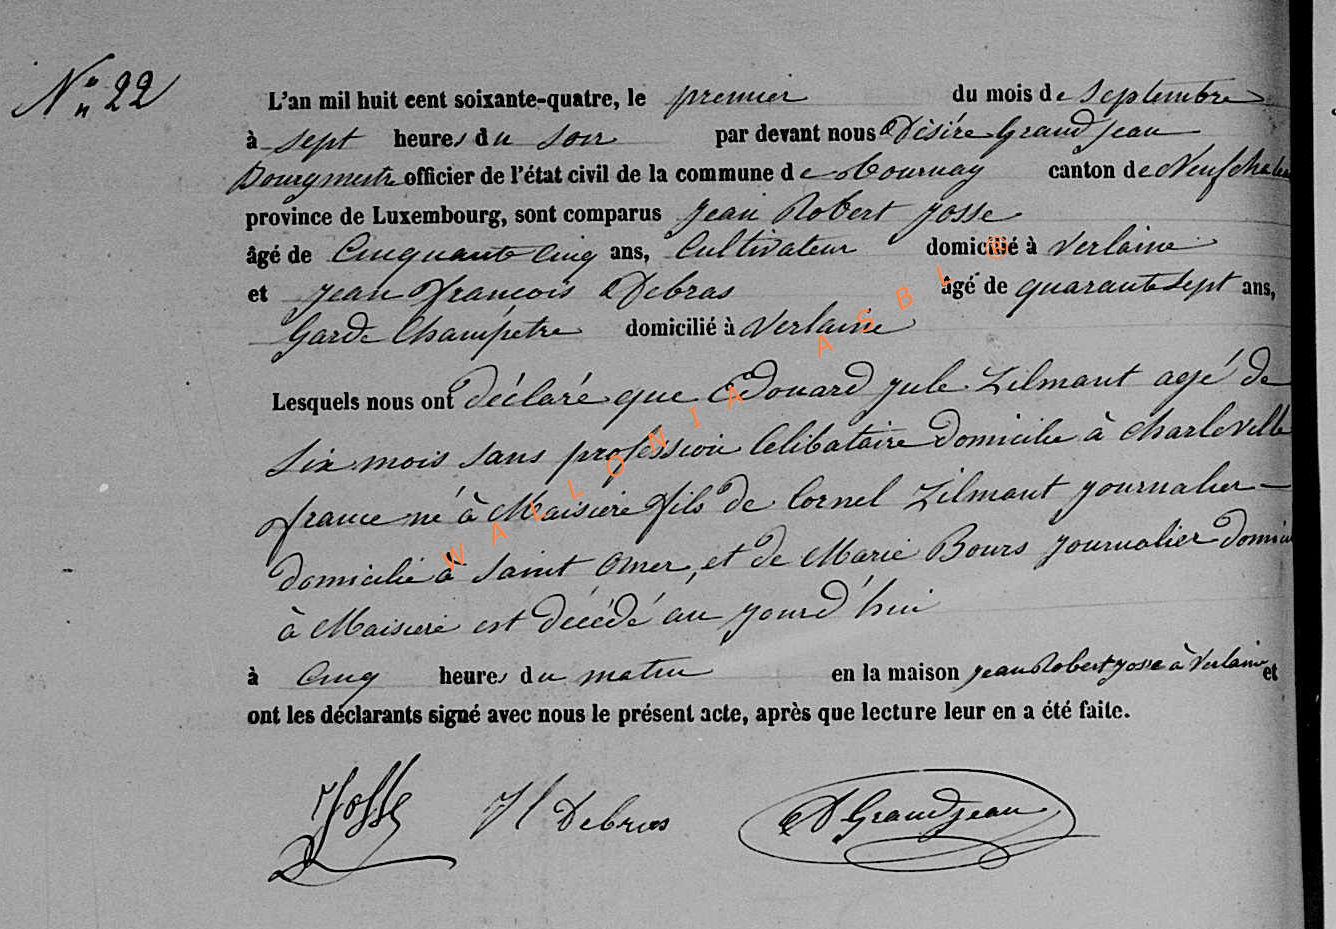 N° 22
L'an mil huit cent soixante-quatre, le premier du mois de Septembre
à sept heures du soir par devant nous Désiré Grandjean
Bourgmestre officier de l'état civil de la commune de Tournay canton de Neufchateau
province de Luxembourg, sont comparus Jean Robert Josse
âgé de Cinquante Cinq ans, Cultivateur domicilié à Verlaine
et Jean François Debras âgé de quarante sept ans,
Garde Champêtre domicilié à Verlaine
Lesquels nous ont déclaré que Edouard Jule Zilmant agé de
six mois sans profession Celibataire Domicilie à Charleville
france né à Maisiere fils de Cornel Zilmant journalier
domicilie à Saint Omer, et de Marie Bours journalier domici
à Maisiere est décédé au jourd'hui
à Cinq heures du matin en la maison Jean Robert Josse à Verlaine et
ont les déclarants signé avec nous le présent acte, après que lecture leur en a été faite.
Josse Debras D Grandjean
WALLONIA ASBL ®